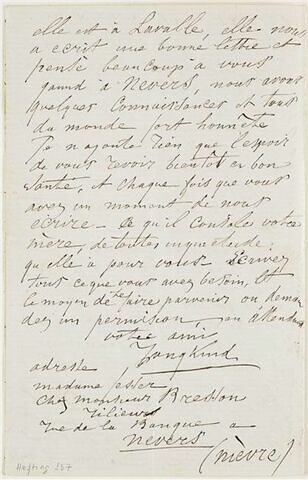 elle est à Lavalle, elle nous
a ecrit une bonne lettre et
pensé beaucoup a vous
quand a Nevers, nous avons
quelques connaissances et tous
du monde fort honnête
Je n'ajoute rien que l'espoir
de vous revoir bientot en bon
santé, et chaque fois que vous
avez un moment de nous
écrire - ce qu'il consoles votre
mère, de toutes inquietude
qu'elle a pour vous écrivez
tous ce que vous avez besoin, et
le moyen de faire parvenir ou deman
dez un permission en attendant
votre ami
Jongkind
adresse
madame fesser
chez monsieur Bresson
rue de la Banque a
Nevers
(nièvre)
Hefting 257